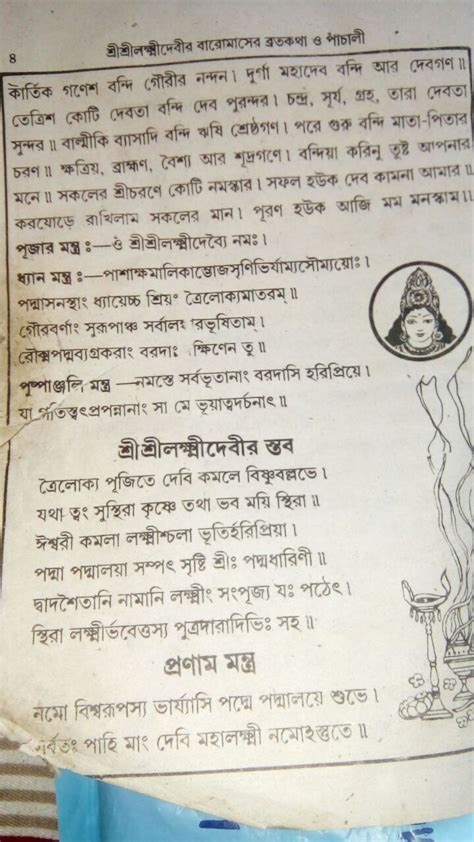 ৪
শ্রীশ্রীলক্ষ্মীদেবীর বারোমাসের ব্রতকথা ও পাঁচালী
কার্তিক গণেশ বন্দি গৌরীর নন্দন। দুর্গা মহাদেব বন্দি আর দেবগণ॥
তেত্রিশ কোটি দেবতা বন্দি দেব পুরন্দর। চন্দ্র, সূর্য, গ্রহ, তারা দেবতা
সুন্দর॥ বাল্মীকি ব্যাসাদি বন্দি ঋষি শ্রেষ্ঠগণ। পরে গুরু বন্দি মাতা-পিতার
চরণ॥ ক্ষত্রিয়, ব্রাহ্মণ, বৈশ্য আর শূদ্রগণে। বন্দিয়া করিনু তুষ্ট আপনার
মনে॥ সকলের শ্রীচরণে কোটি নমস্কার। সফল হউক দেব কামনা আমার॥
করযোড়ে রাখিলাম সকলের মান। পূরণ হউক আজি মম মনস্কাম॥
পূজার মন্ত্র ঃ—ওঁ শ্রীশ্রীলক্ষ্মীদেব্যৈ নমঃ।
ধ্যান মন্ত্র ঃ—পাশাক্ষমালিকাম্ভোজসৃণিভির্যাম্যসৌম্যয়োঃ।
পদ্মাসনস্থাং ধ্যায়েচ্চ শ্রিয়ং ত্রৈলোক্যমাতরম্॥
গৌরবর্ণাং সুরূপাঞ্চ সর্বালং রভূষিতাম্।
রৌক্মপদ্মব্যগ্রকরাং বরদাং ক্ষিণেন তু॥
পুষ্পাঞ্জলি মন্ত্র —নমস্তে সর্বভূতানাং বরদাসি হরিপ্রিয়ে।
যা গতিস্ত্বৎপ্রপন্নানাং সা মে ভূয়াত্বদর্চনাৎ॥
শ্রীশ্রীলক্ষ্মীদেবীর স্তব
ত্রৈলোক্য পূজিতে দেবি কমলে বিষ্ণুবল্লভে।
যথা ত্বং সুস্থিরা কৃষ্ণে তথা ভব ময়ি স্থিরা॥
ঈশ্বরী কমলা লক্ষ্মীশ্চলা ভূতির্হরিপ্রিয়া।
পদ্মা পদ্মালয়া সম্পৎ সৃষ্টি শ্রীঃ পদ্মধারিণী॥
দ্বাদশৈতানি নামানি লক্ষ্মীং সংপূজ্য যঃ পঠেৎ।
স্থিরা লক্ষ্মীর্ভবেত্তস্য পুত্রদারাদিভিঃ সহ॥
প্রণাম মন্ত্র
নমো বিশ্বরূপস্য ভার্য্যাসি পদ্মে পদ্মালয়ে শুভে।
পাহি মাং দেবি মহালক্ষ্মী নমোঽস্তুতে॥